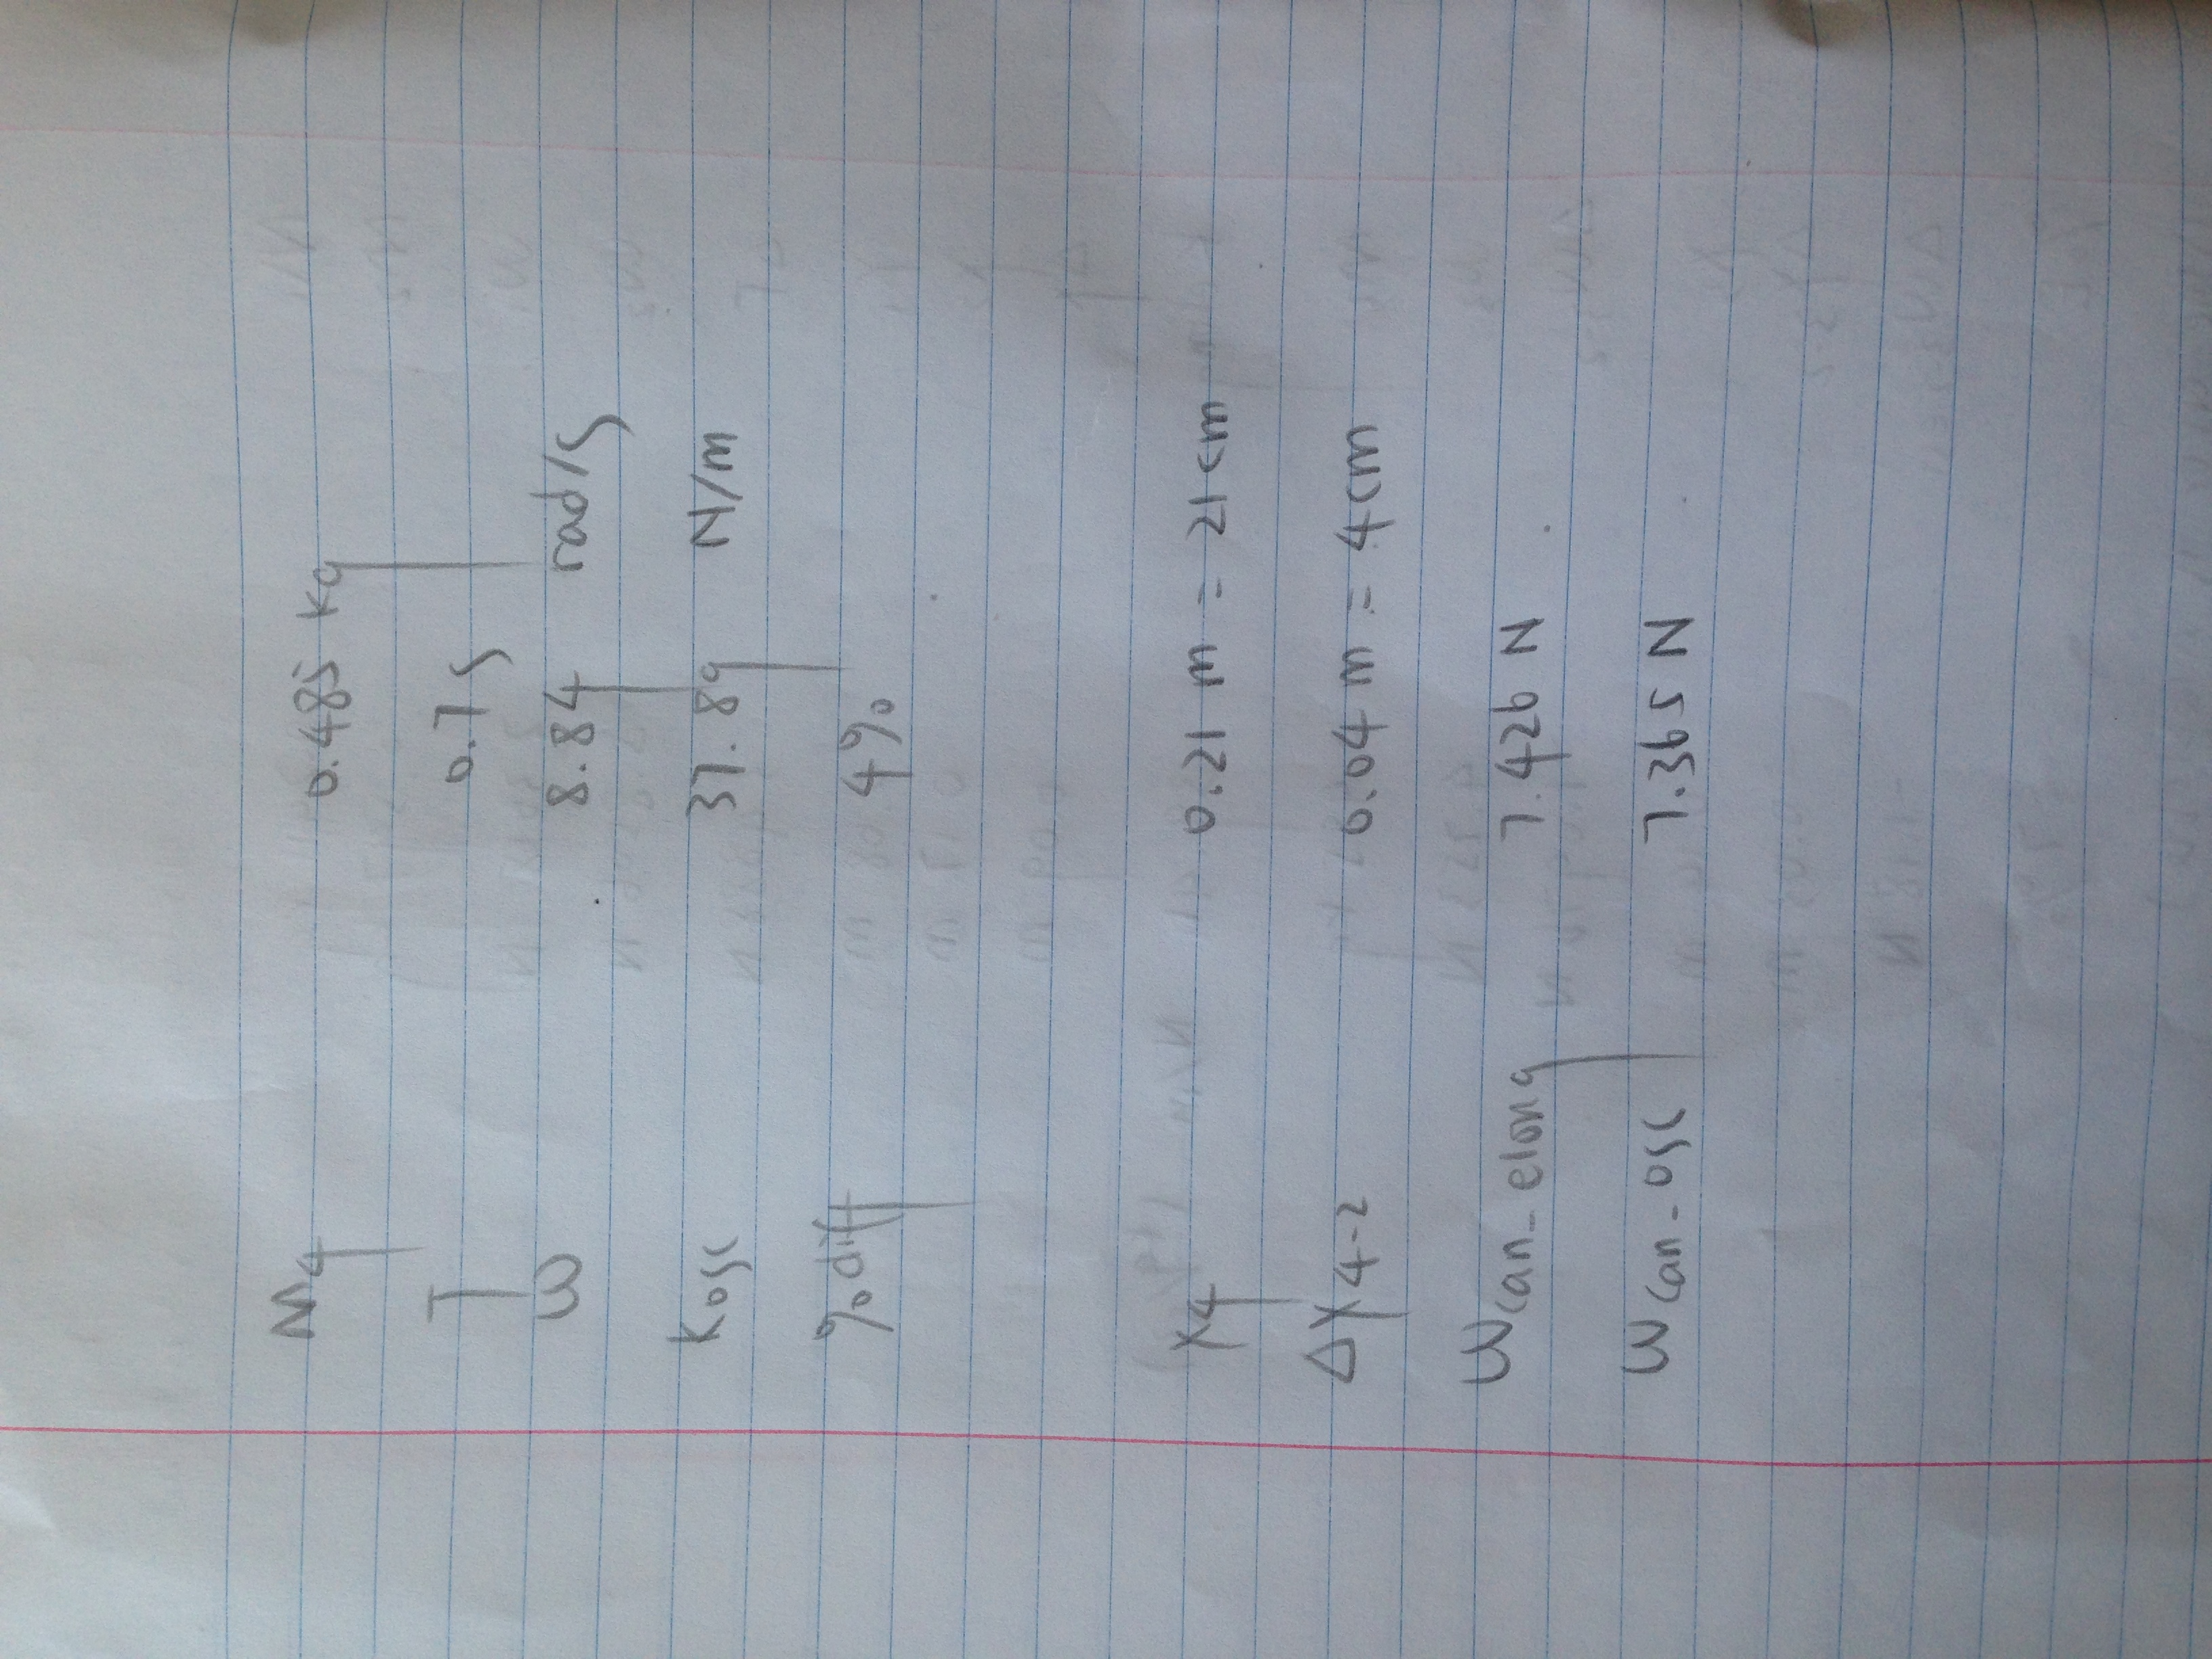 M4 0.485 kg
T 0.7 s
ω 8.84 rad/s
Kosc 37.89 N/m
% diff 4%
X4 0.21 m = 21 cm
ΔX4-2 0.04 m = 4 cm
Wcan_elong 7.426 N
Wcan-osc 7.365 N